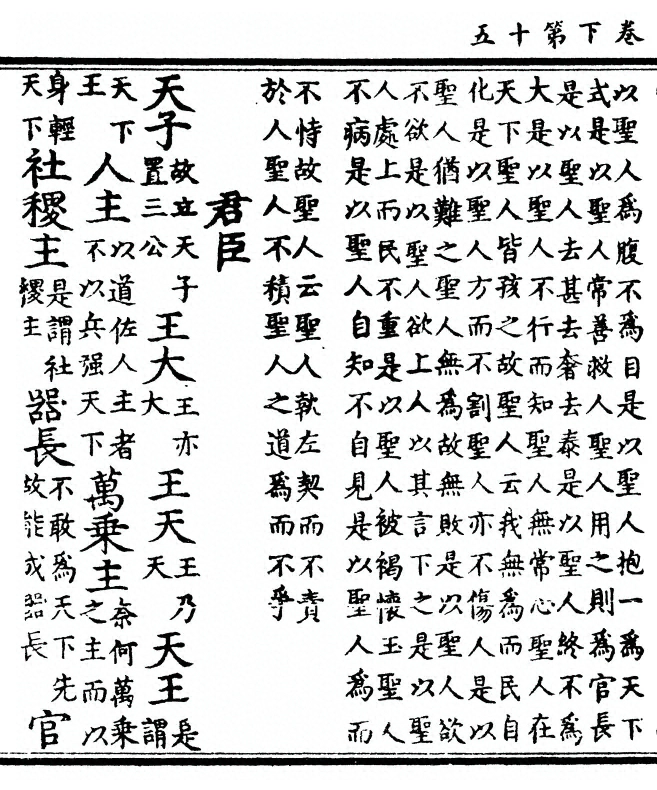 卷下第十五
以聖人爲腹不爲目是以聖人抱一爲天下
式是以聖人常善救人聖人用之則爲官長
是以聖人去甚去奢去泰是以聖人終不爲
大是以聖人不行而知聖人無常心聖人在
天下聖人皆孩之故聖人云我無爲而民自
化是以聖人方而不割聖人亦不傷人是以
聖人猶難之聖人無爲故無敗是以聖人欲
不欲是以聖人欲上人以其言下之是以聖
人處上而民不重是以聖人被褐懷玉聖人
不病是以聖人自知不自見是以聖人爲而
不恃故聖人云聖人執左契而不責
於人聖人不積聖人之道爲而不爭
君臣
天子故立天子置三公王大王亦大王天王乃天天王是謂
天下王人主以道佐人主者不以兵强天下萬乗主奈何萬乗之主而以
身輕天下社稷主是謂社稷主器長不敢爲天下先故能成器長官